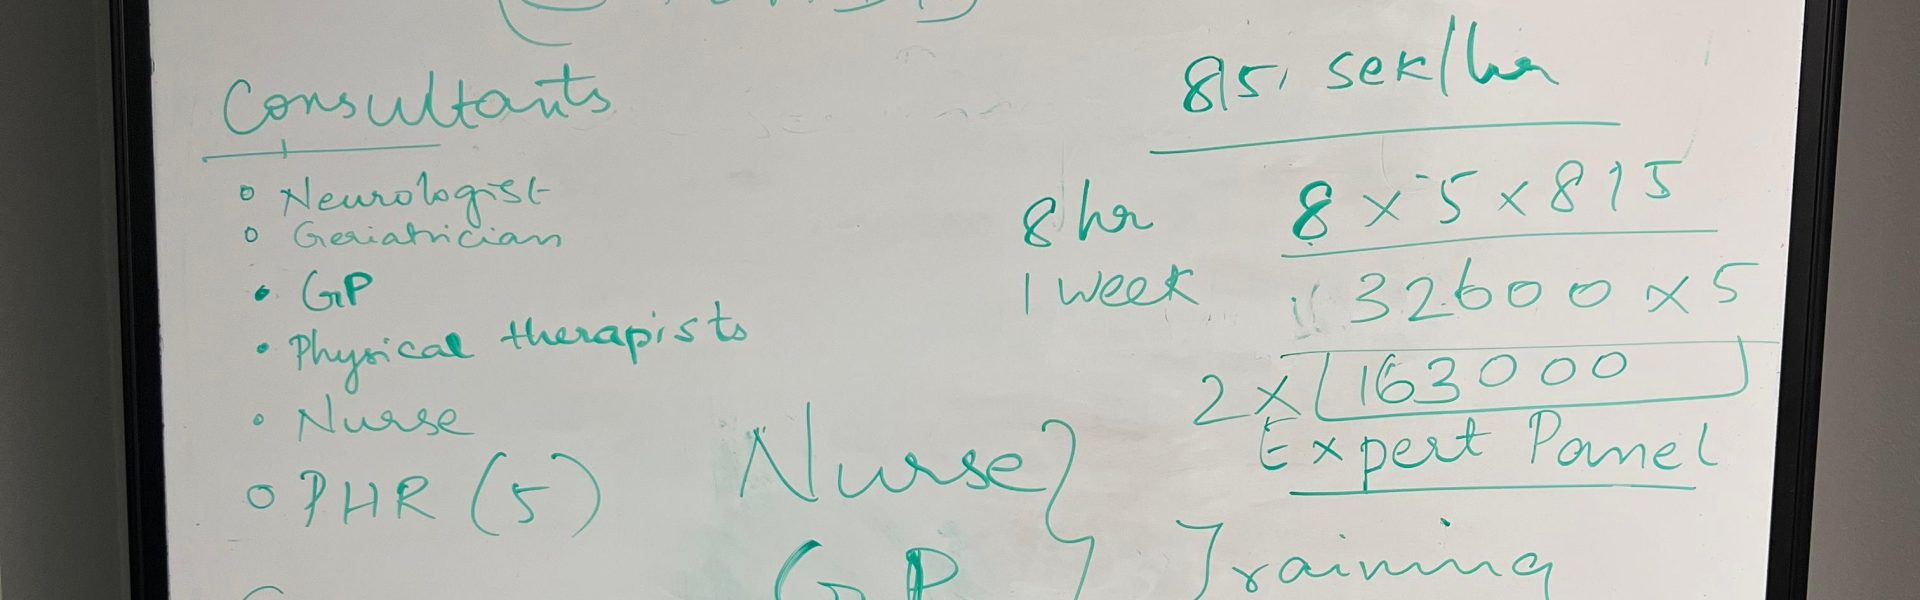 Consultants
Neurologist
Geriatrician
GP
Physical therapists
Nurse
PHR (5)
Nurse
GP
815 sek/hr
8 hr 8 x 5 x 815
1 week 32600 x 5
2 x 163000
Expert Panel
Training